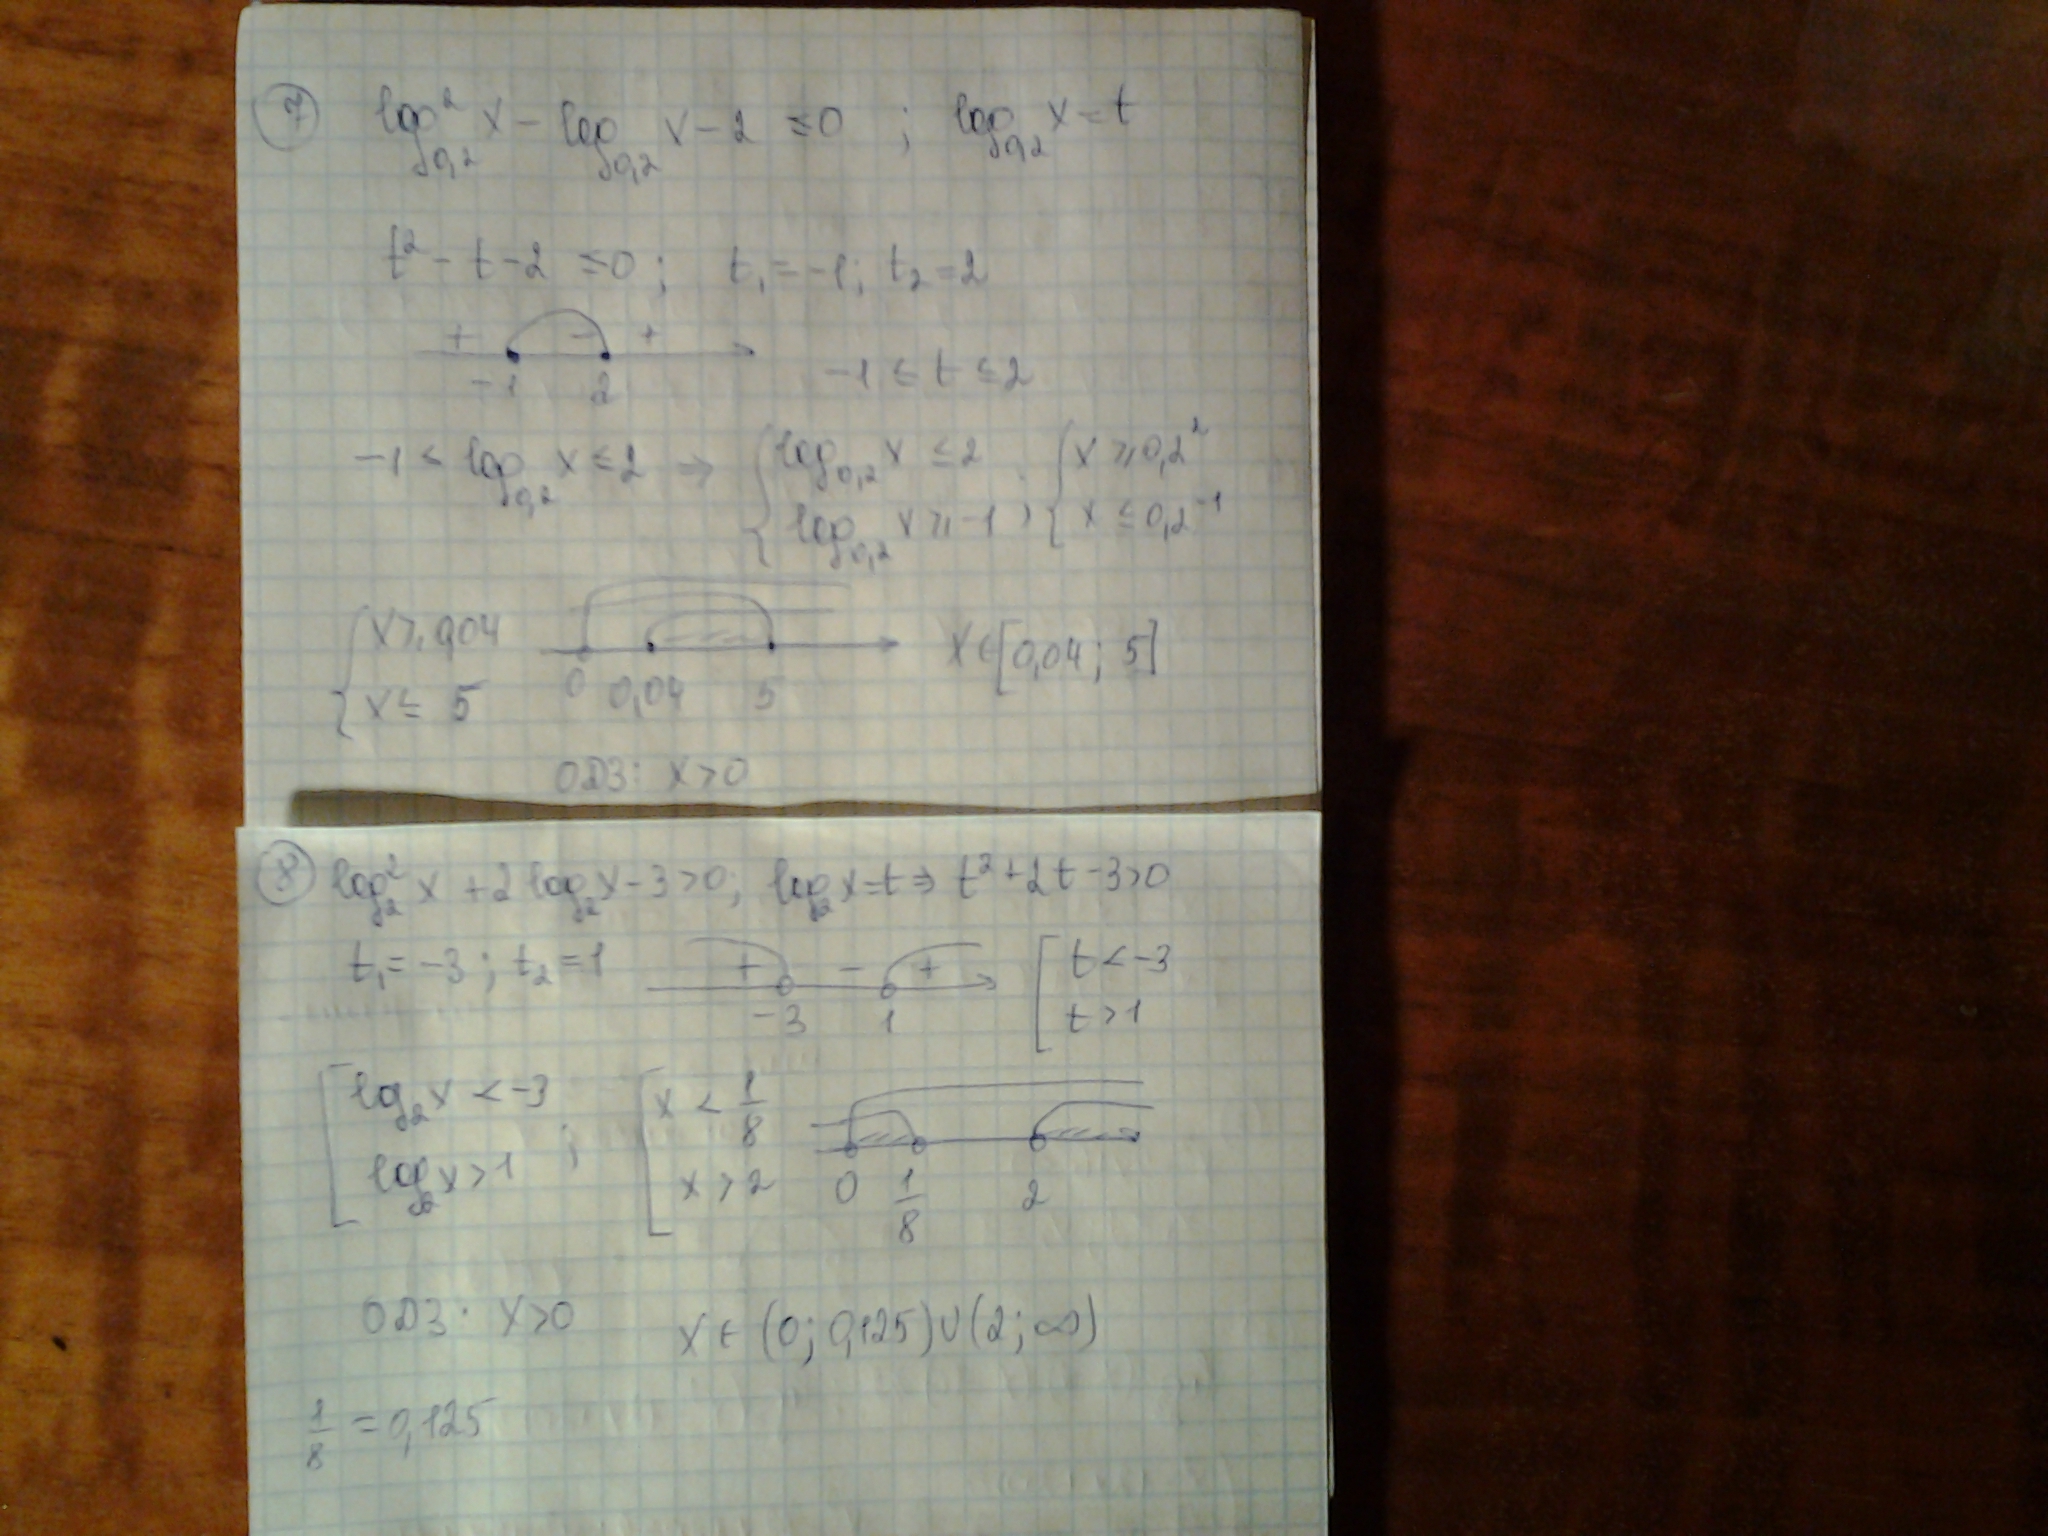 7 log²₀,₂ x – log₀,₂ x – 2 ≤ 0 ; log₀,₂ x = t
t² – t – 2 ≤ 0 ; t₁ = –1 ; t₂ = 2
+ – +
–1 2 –1 ≤ t ≤ 2
–1 ≤ log₀,₂ x ≤ 2 ⇒ { log₀,₂ x ≤ 2 ; { x ≥ 0,2²
log₀,₂ x ≥ –1 x ≤ 0,2⁻¹
{ x ≥ 0,04
x ≤ 5 0 0,04 5 x ∈ [0,04 ; 5]
ОДЗ: x > 0
8 log²₂ x + 2 log₂ x – 3 > 0 ; log₂ x = t ⇒ t² + 2t – 3 > 0
t₁ = –3 ; t₂ = 1 + – + [ t < –3
–3 1 t > 1
[ log₂ x < –3 ; [ x < 1/8
log₂ x > 1 x > 2 0 1/8 2
ОДЗ: x > 0 x ∈ (0 ; 0,125) ∪ (2 ; ∞)
1/8 = 0,125